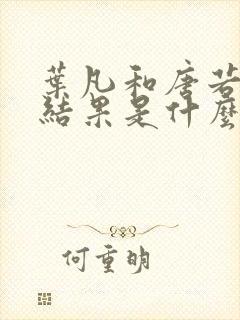 葉凡和唐若
結果是什麼
何重明